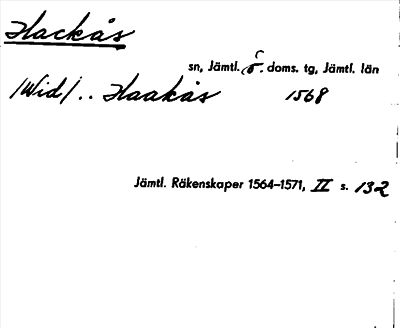 Hackås
sn, Jämtl. s. doms. tg, Jämtl. län
/Wid/.. Haakås 1568
Jämtl. Räkenskaper 1564–1571, II s. 132